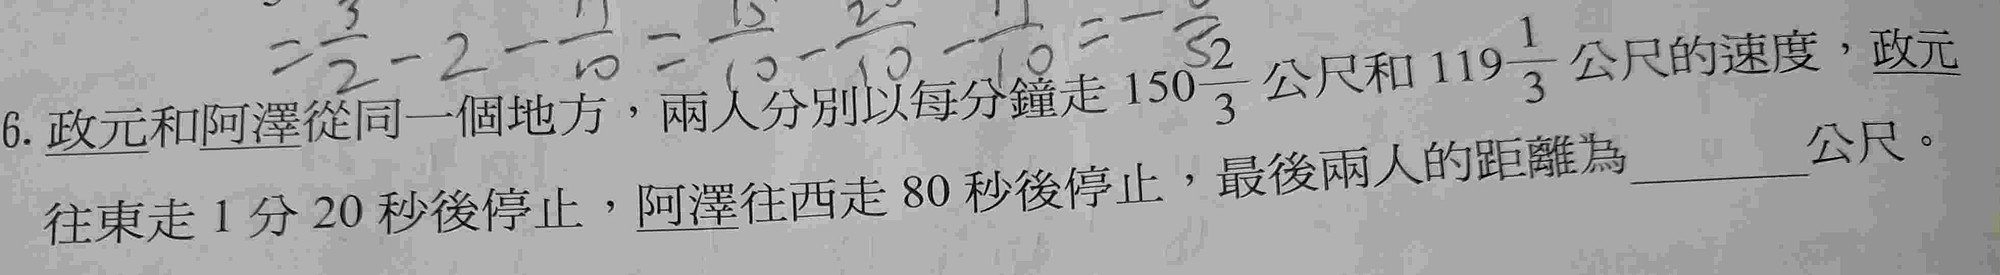 = 3/2 - 2 - 11/10 = 15/10 - 20/10 - 11/10 = -
6. 政元和阿澤從同一個地方，兩人分別以每分鐘走 150 2/3 公尺和 119 1/3 公尺的速度，政元
往東走 1 分 20 秒後停止，阿澤往西走 80 秒後停止，最後兩人的距離為＿＿＿＿公尺。